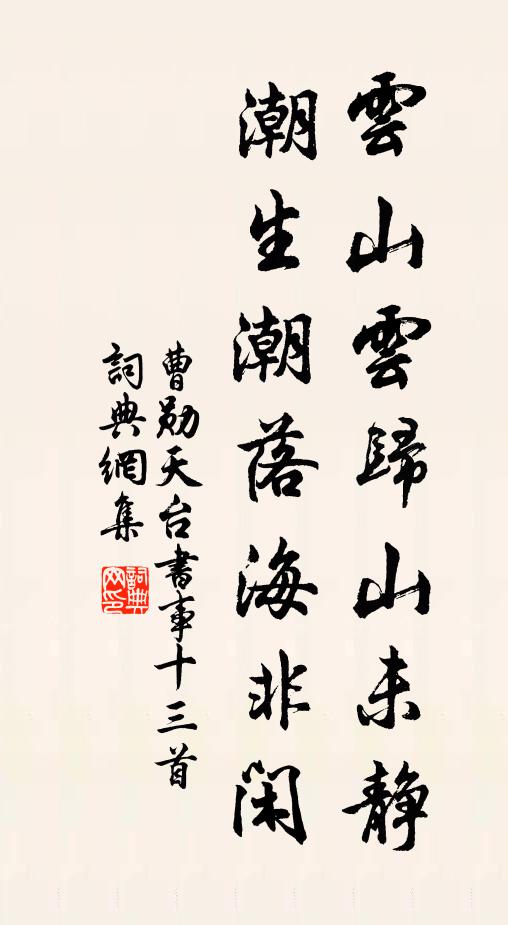 雲山雲歸山未静
潮生潮落海非閑
曹勛天台書事十三首
詞典網集
詞典網印